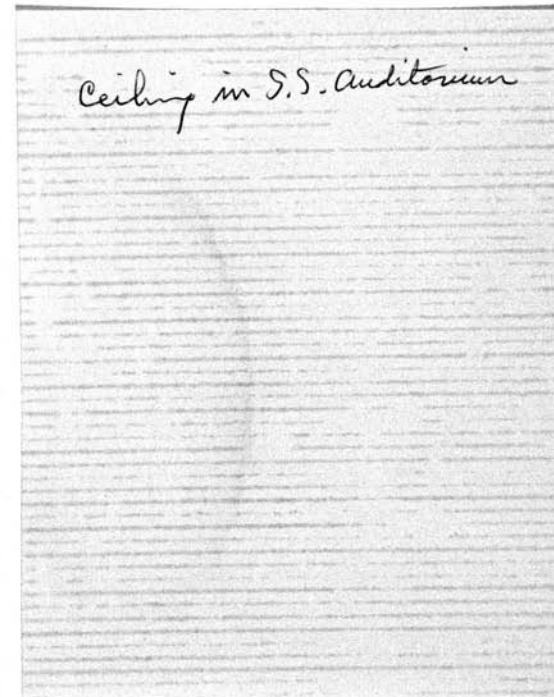 Ceiling in S.S. Auditorium